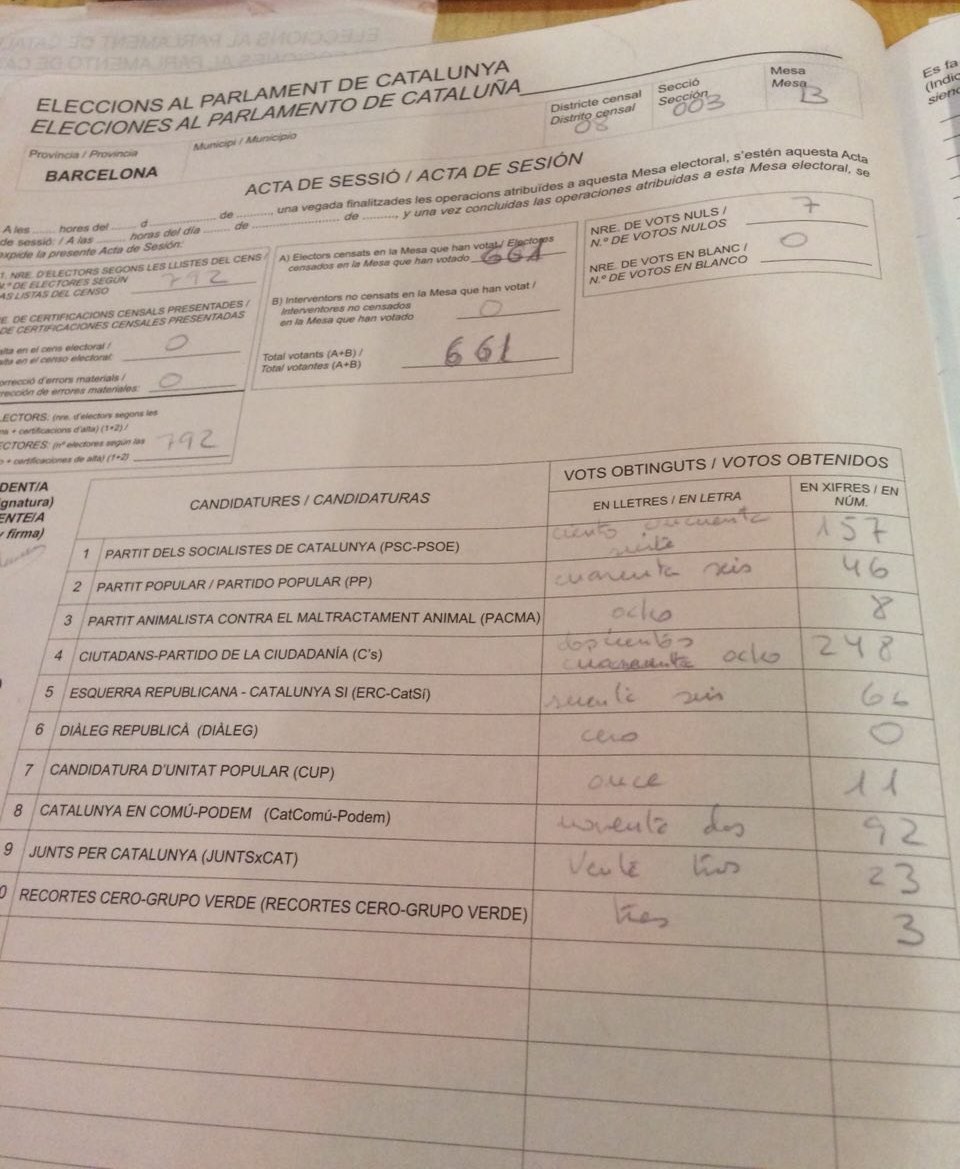 ELECCIONS AL PARLAMENT DE CATALUNYA
ELECCIONES AL PARLAMENTO DE CATALUÑA
Districte censal
Distrito censal
08
Secció
Sección
003
Mesa
Mesa
B
Província / Provincia
BARCELONA
Municipi / Municipio
ACTA DE SESSIÓ / ACTA DE SESIÓN
A les ...... hores del ...... d ............ de ........., una vegada finalitzades les operacions atribuïdes a aquesta Mesa electoral, s'estén aquesta Acta
de sessió: / A las ......... horas del día ....... de ............ de ........., y una vez concluidas las operaciones atribuidas a esta Mesa electoral, se
expide la presente Acta de Sesión:
1. NRE. D'ELECTORS SEGONS LES LLISTES DEL CENS /
N.º DE ELECTORES SEGÚN
AS LISTAS DEL CENSO 792
E. DE CERTIFICACIONS CENSALS PRESENTADES /
DE CERTIFICACIONES CENSALES PRESENTADAS
alta en el cens electoral /
alta en el censo electoral: 0
orrecció d'errors materials /
rección de errores materiales: 0
LECTORS: (nre. d'electors segons les
ns + certificacions d'alta) (1+2) /
ECTORES: (nº electores según las
o + certificaciones de alta) (1+2) 792
A) Electors censats en la Mesa que han votat / Electores
censados en la Mesa que han votado 661
B) Interventors no censats en la Mesa que han votat /
Interventores no censados
en la Mesa que han votado 0
Total votants (A+B) /
Total votantes (A+B) 661
NRE. DE VOTS NULS /
N.º DE VOTOS NULOS 7
NRE. DE VOTS EN BLANC /
N.º DE VOTOS EN BLANCO 0
DENT/A
gnatura)
ENTE/A
y firma)
CANDIDATURES / CANDIDATURAS
VOTS OBTINGUTS / VOTOS OBTENIDOS
EN LLETRES / EN LETRA
EN XIFRES / EN
NÚM.
1 PARTIT DELS SOCIALISTES DE CATALUNYA (PSC-PSOE) ciento cincuenta siete 157
2 PARTIT POPULAR / PARTIDO POPULAR (PP) cuarenta seis 46
3 PARTIT ANIMALISTA CONTRA EL MALTRACTAMENT ANIMAL (PACMA) ocho 8
4 CIUTADANS-PARTIDO DE LA CIUDADANÍA (C's) cuarenta ocho 248
5 ESQUERRA REPUBLICANA - CATALUNYA SI (ERC-CatSí) seis 66
6 DIÀLEG REPUBLICÀ (DIÀLEG) cero 0
7 CANDIDATURA D'UNITAT POPULAR (CUP) once 11
8 CATALUNYA EN COMÚ-PODEM (CatComú-Podem) noventa dos 92
9 JUNTS PER CATALUNYA (JUNTSxCAT) tres 23
0 RECORTES CERO-GRUPO VERDE (RECORTES CERO-GRUPO VERDE) tres 3
Es fa
(Indic
siend